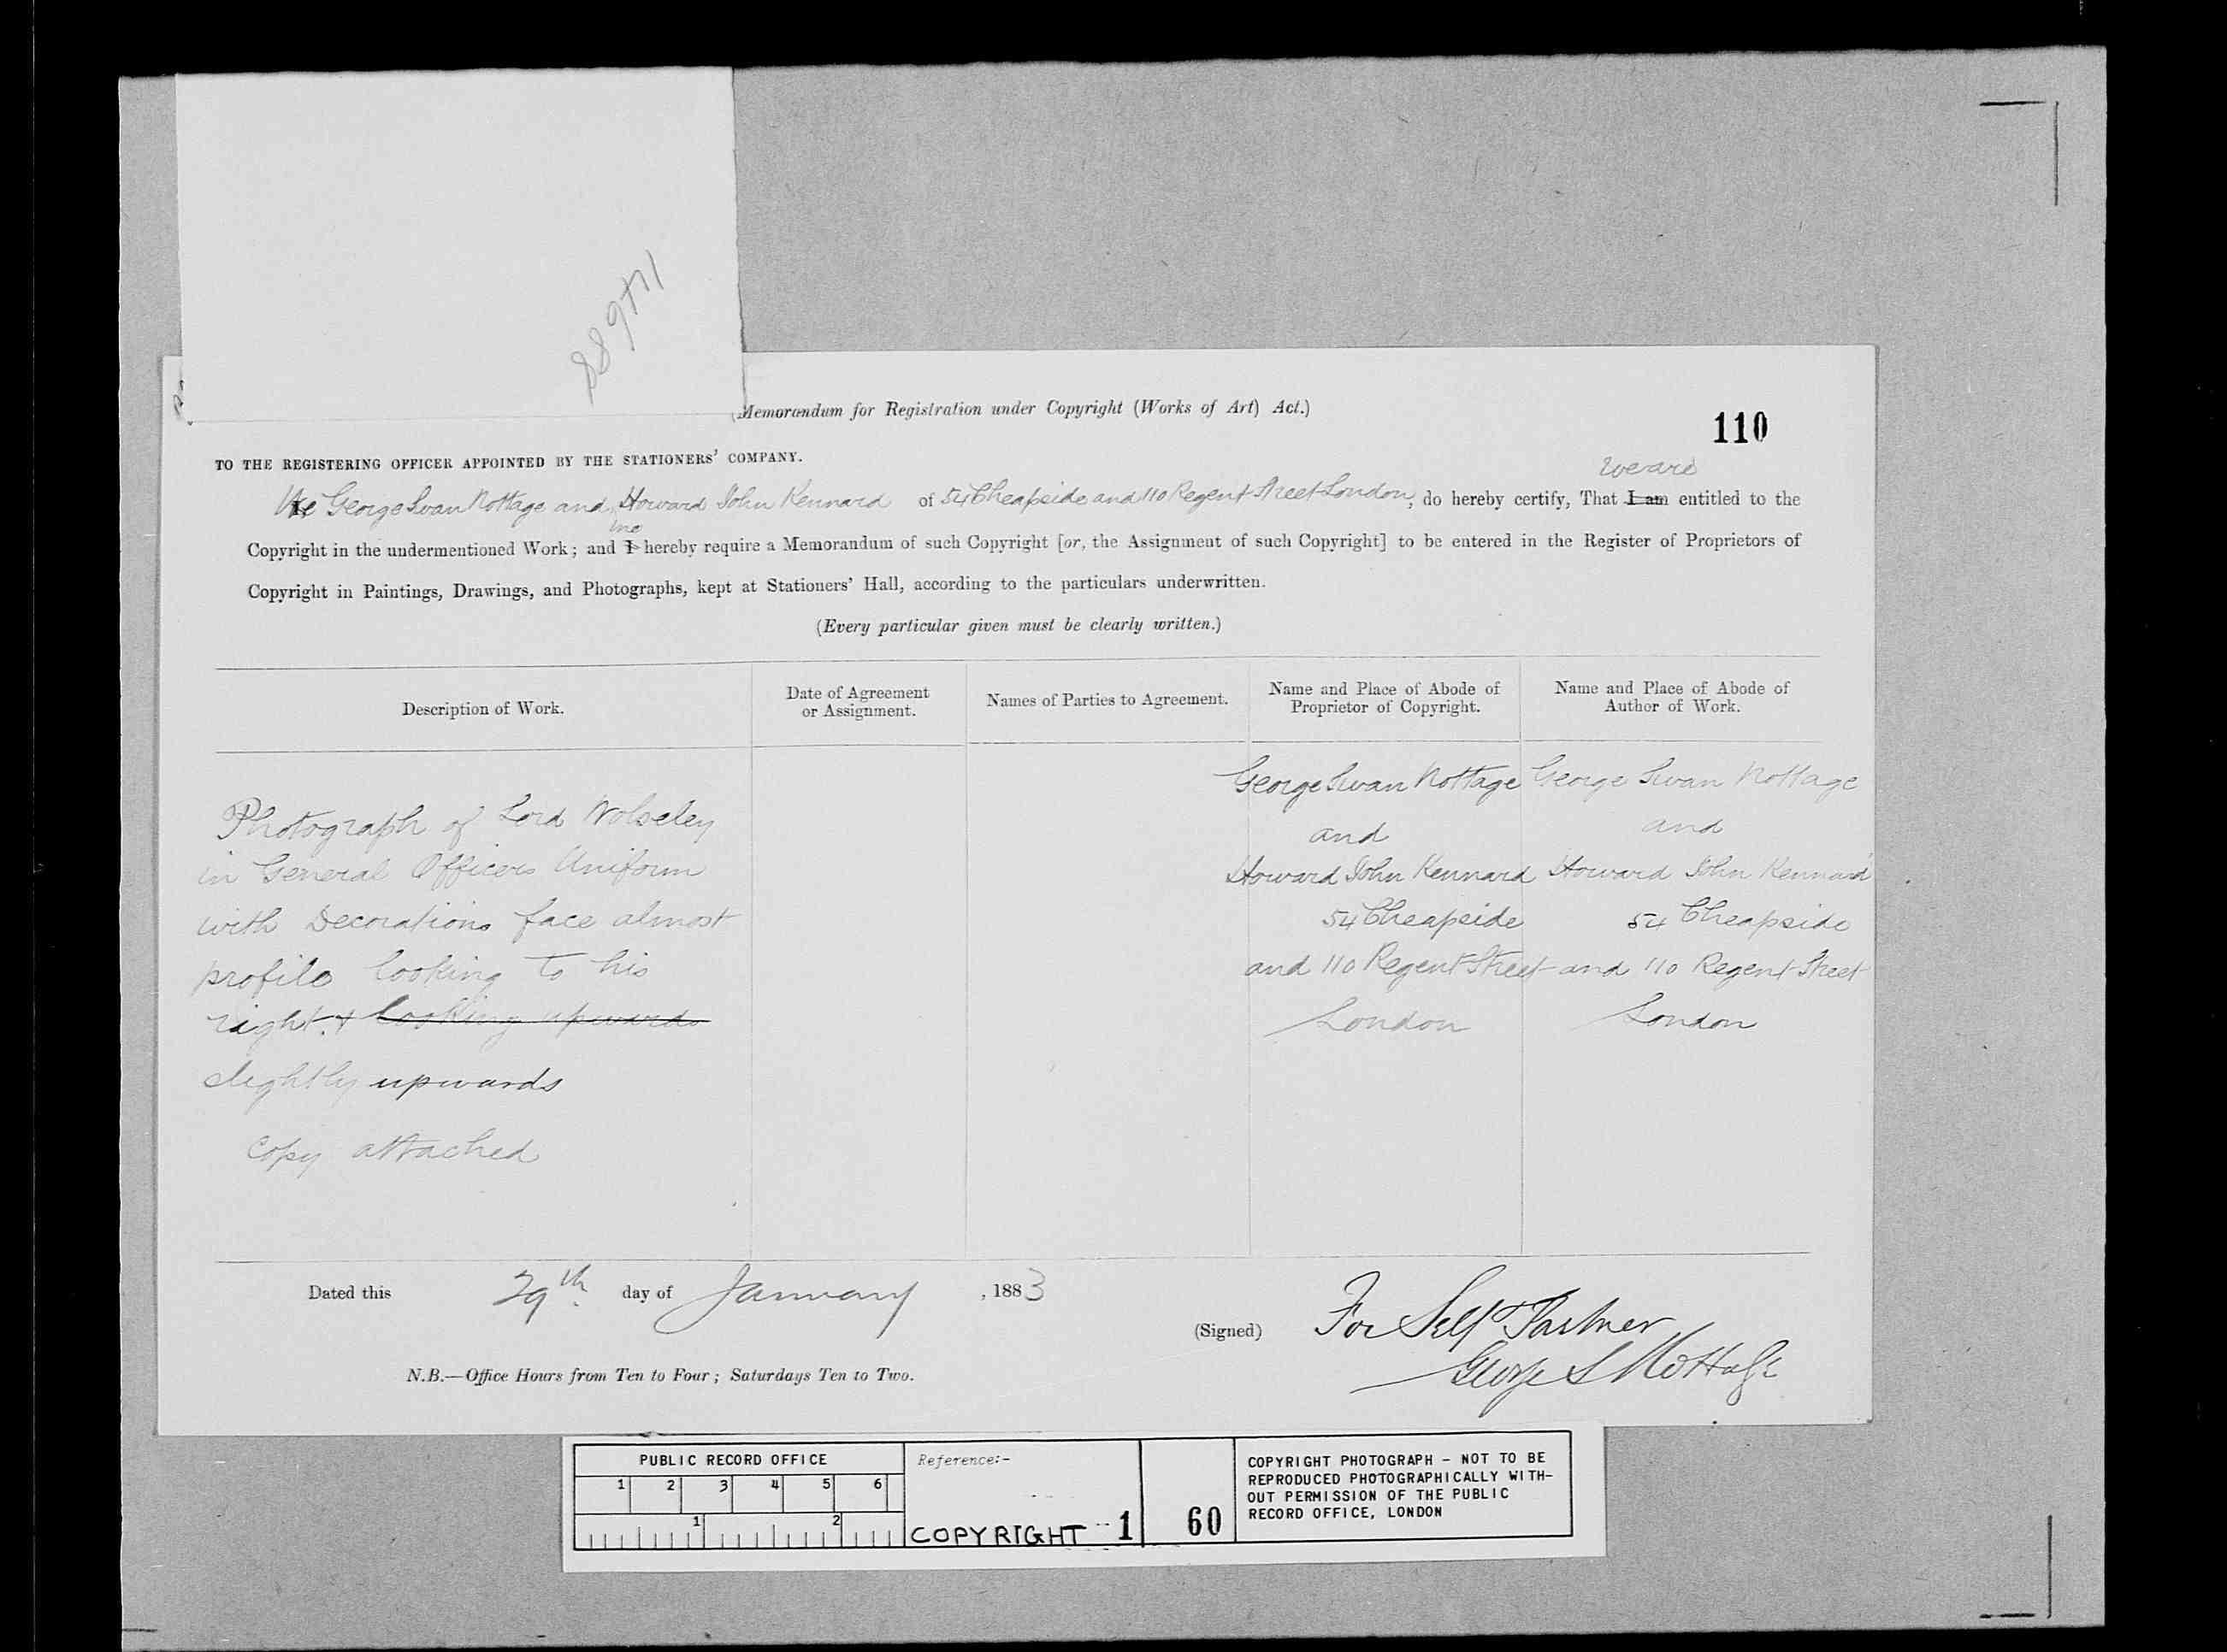 114688
(Memorandum for Registration under Copyright (Works of Art) Act.)
110
TO THE REGISTERING OFFICER APPOINTED BY THE STATIONERS' COMPANY.
we are
We George Swan Nottage and Howard John Kennard of 54 Cheapside and 110 Regent Street London, do hereby certify, That I am entitled to the
we
Copyright in the undermentioned Work; and I hereby require a Memorandum of such Copyright [or, the Assignment of such Copyright] to be entered in the Register of Proprietors of
Copyright in Paintings, Drawings, and Photographs, kept at Stationers' Hall, according to the particulars underwritten.
(Every particular given must be clearly written.)
Description of Work.
Date of Agreement
or Assignment.
Names of Parties to Agreement.
Name and Place of Abode of
Proprietor of Copyright.
Name and Place of Abode of
Author of Work.
Photograph of Lord Wolseley
in General Officers Uniform
with Decorations face almost
profile looking to his
right. & looking upwards
slightly upwards
Copy attached
George Swan Nottage
and
Howard John Kennard
54 Cheapside
and 110 Regent Street
London
George Swan Nottage
and
Howard John Kennard
54 Cheapside
and 110 Regent Street
London
Dated this 29th. day of January, 1883
(Signed) For Self & Partner
George S Nottage
N.B.—Office Hours from Ten to Four; Saturdays Ten to Two.
PUBLIC RECORD OFFICE
1 2 3 4 5 6
1 2
Reference:-
COPYRIGHT 1
60
COPYRIGHT PHOTOGRAPH - NOT TO BE
REPRODUCED PHOTOGRAPHICALLY WITH-
OUT PERMISSION OF THE PUBLIC
RECORD OFFICE, LONDON